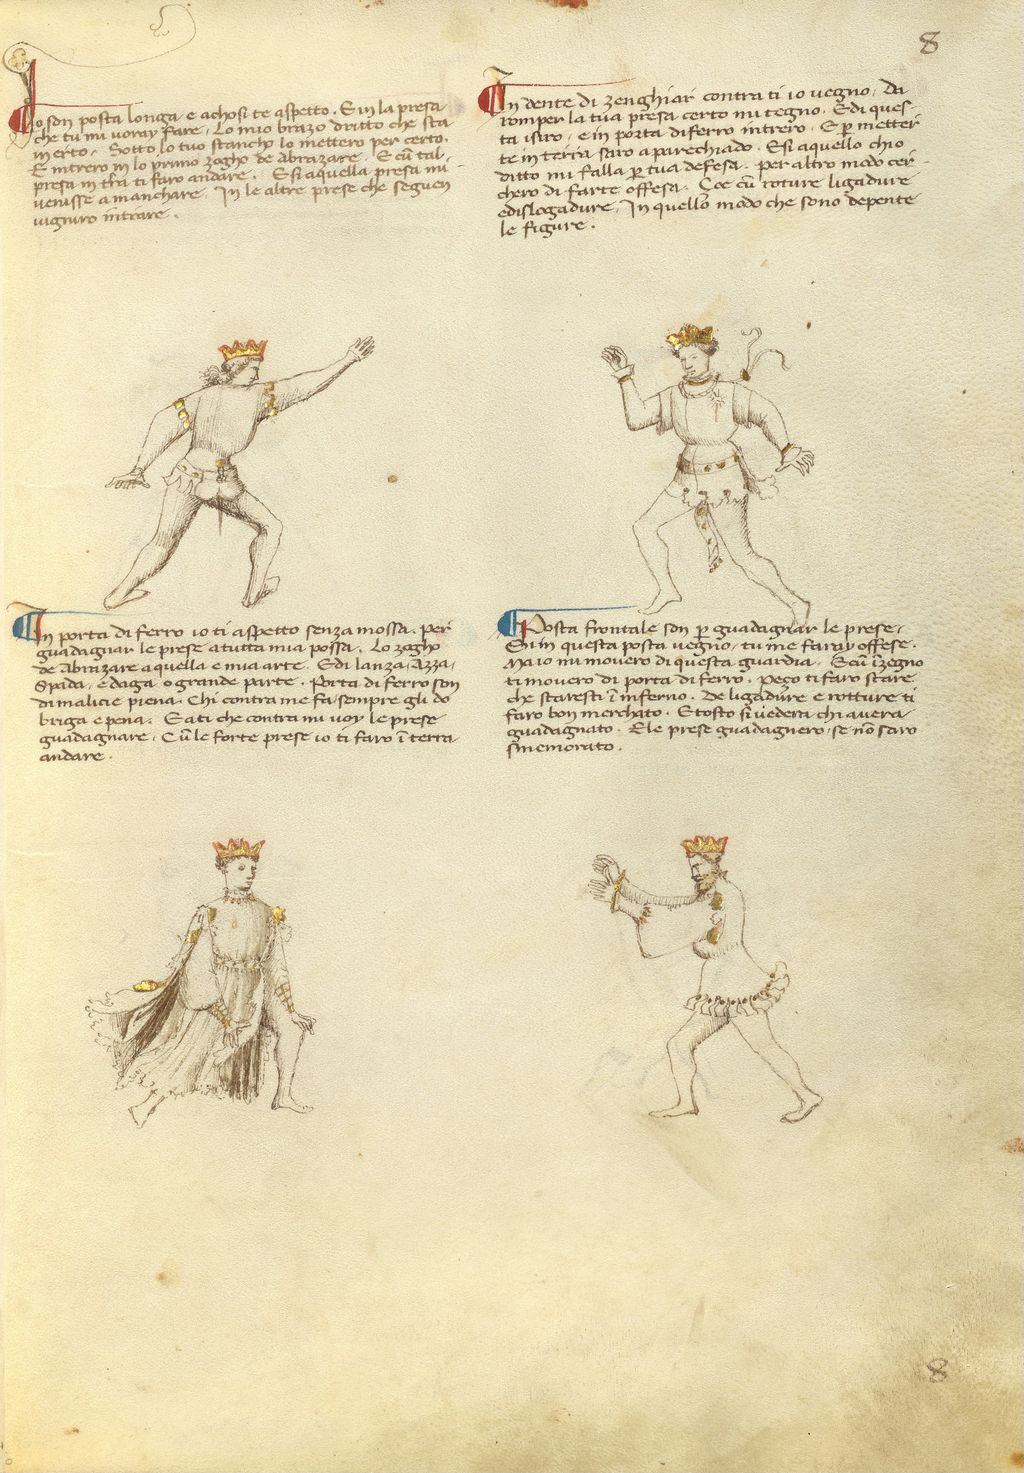 8
Io son posta longa e achosi te aspetto. E in la presa
che tu mi voray fare. Lo mio brazo dritto che sta
in erto. Sotto lo tuo stancho lo mettero per certo.
E intrero in lo primo zogho de abrazare. E cū tal
presa in tr̄a ti faro andare. E si aquella presa mi
venisse a manchare. In le altre prese che seguen
vigniro intrare.
In dente di zenghiar contra ti io vegno. Da
romper la tua presa certo mi tegno. E di ques-
ta isiro, e in porta di ferro intrero. E p̄ metter
te in terra saro aparechiado. E si aquello ch'io
ditto mi falla p̄ tua defesa. per altro modo cer
chero di farte offesa. Çoe cū roture ligadure
e dislogadure. In quello modo che sono depente
le figure.
In porta di ferro io ti aspetto senza mossa. per
guadagnar le prese a tutta mia possa. Lo zogho
de abrazare aquella e mia arte. E di lanza, Azza,
Spada, e daga o grande parte. Porta di ferro son
di malicie piena. Chi contra me fa sempre gli do
briga e pena. E a ti che contra mi voy le prese
guadagnare. Cū le forte prese io ti faro ī terra
andare.
Posta frontale son p̄ guadagnar le prese.
Si in questa posta vegno, tu me faray offese.
Ma io mi movero di questa guardia. E cū īzegno
ti movero di porta di ferro. Pezo ti faro stare
che staresti ī inferno. De ligadure e rotture ti
faro bon merchato. E tosto si vedera chi avera
guadagnato. E le prese guadagnero se nō saro
smemorato.
8